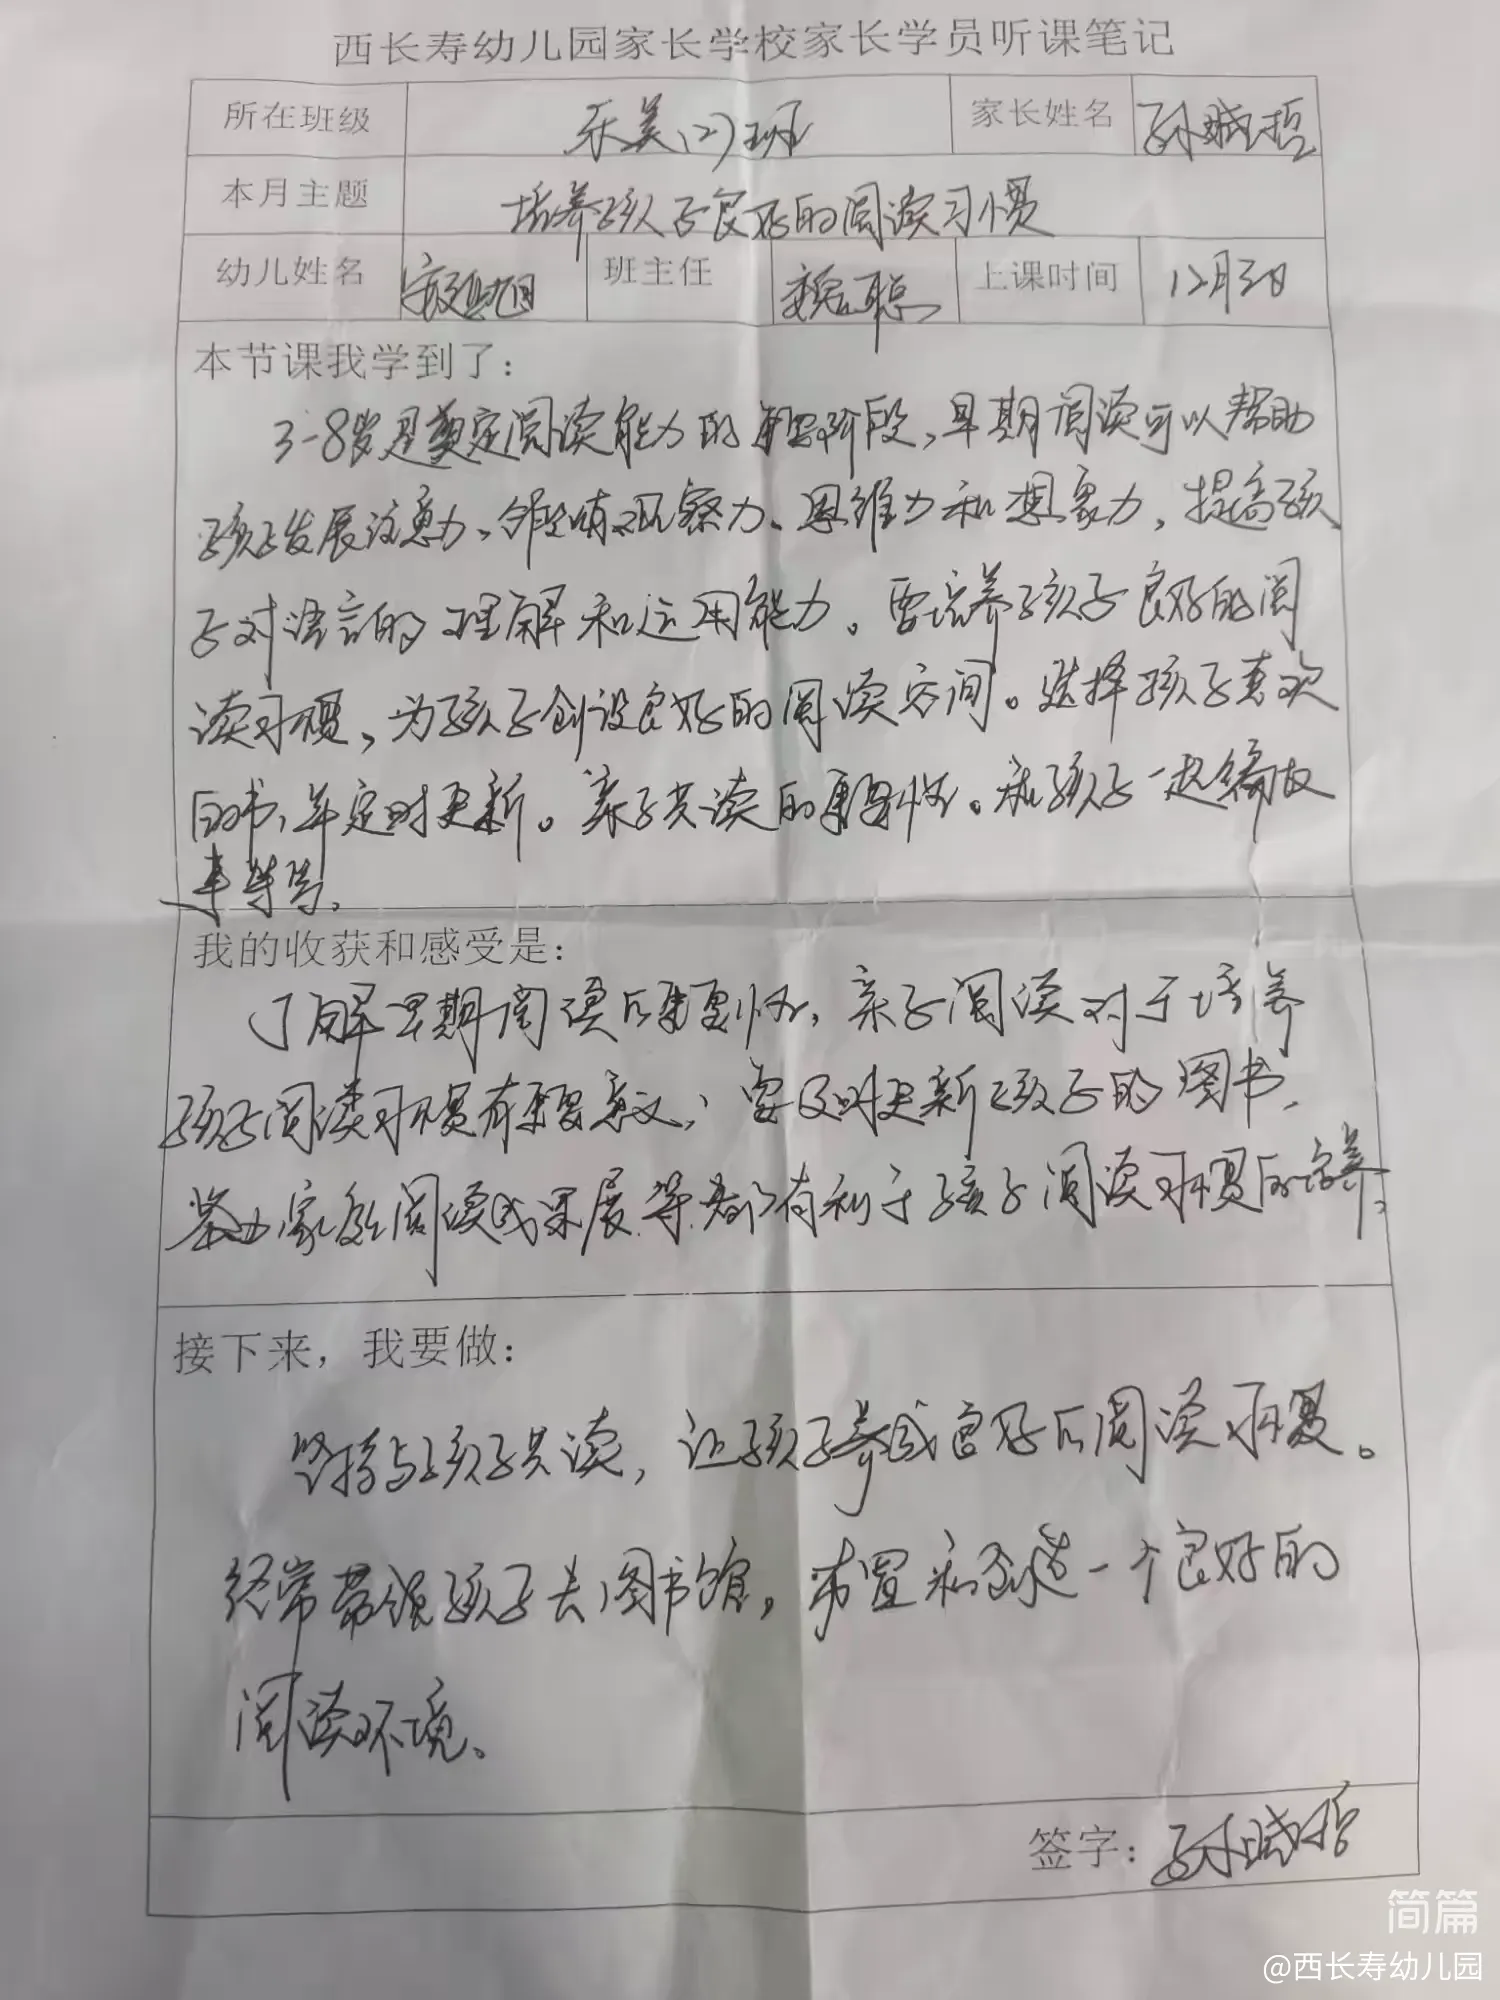 西长寿幼儿园家长学校家长学员听课笔记
所在班级 美(2)班 家长姓名 孙晓哲
本月主题 培养孩子良好的阅读习惯
幼儿姓名 班主任 魏聪 上课时间 12月3日
本节课我学到了：
3-8岁是奠定阅读能力的重要阶段，早期阅读可以帮助
孩子发展注意力、观察力、思维力和想象力，提高孩
子对语言的理解和运用能力。要培养孩子良好的阅
读习惯，为孩子创设良好的阅读空间。选择孩子喜欢
的书，并定时更新。亲子共读的重要性。和孩子一起编故
事等等。
我的收获和感受是：
了解早期阅读的重要性，亲子阅读对于培养
孩子阅读习惯有重要意义，要及时更新孩子的图书，
举办家庭阅读成果展等都有利于孩子阅读习惯的培养。
接下来，我要做：
坚持与孩子共读，让孩子养成良好的阅读习惯。
经常带领孩子去图书馆，布置和创造一个良好的
阅读环境。
签字：孙晓哲
简篇
@西长寿幼儿园